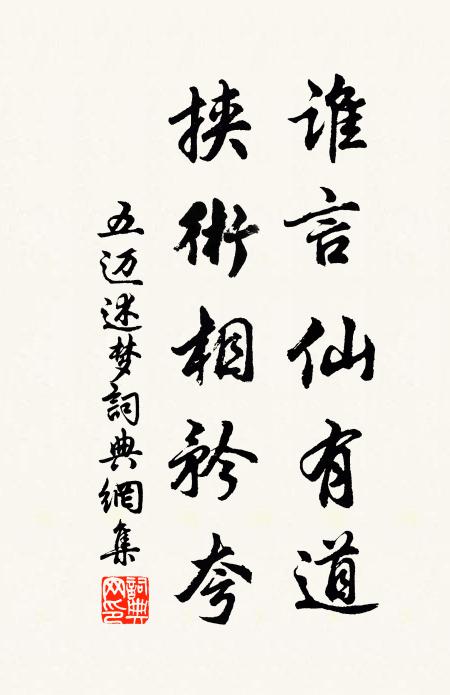 谁言仙有道
挟術相矜夸
五迈迷梦詞典網集
詞典网印